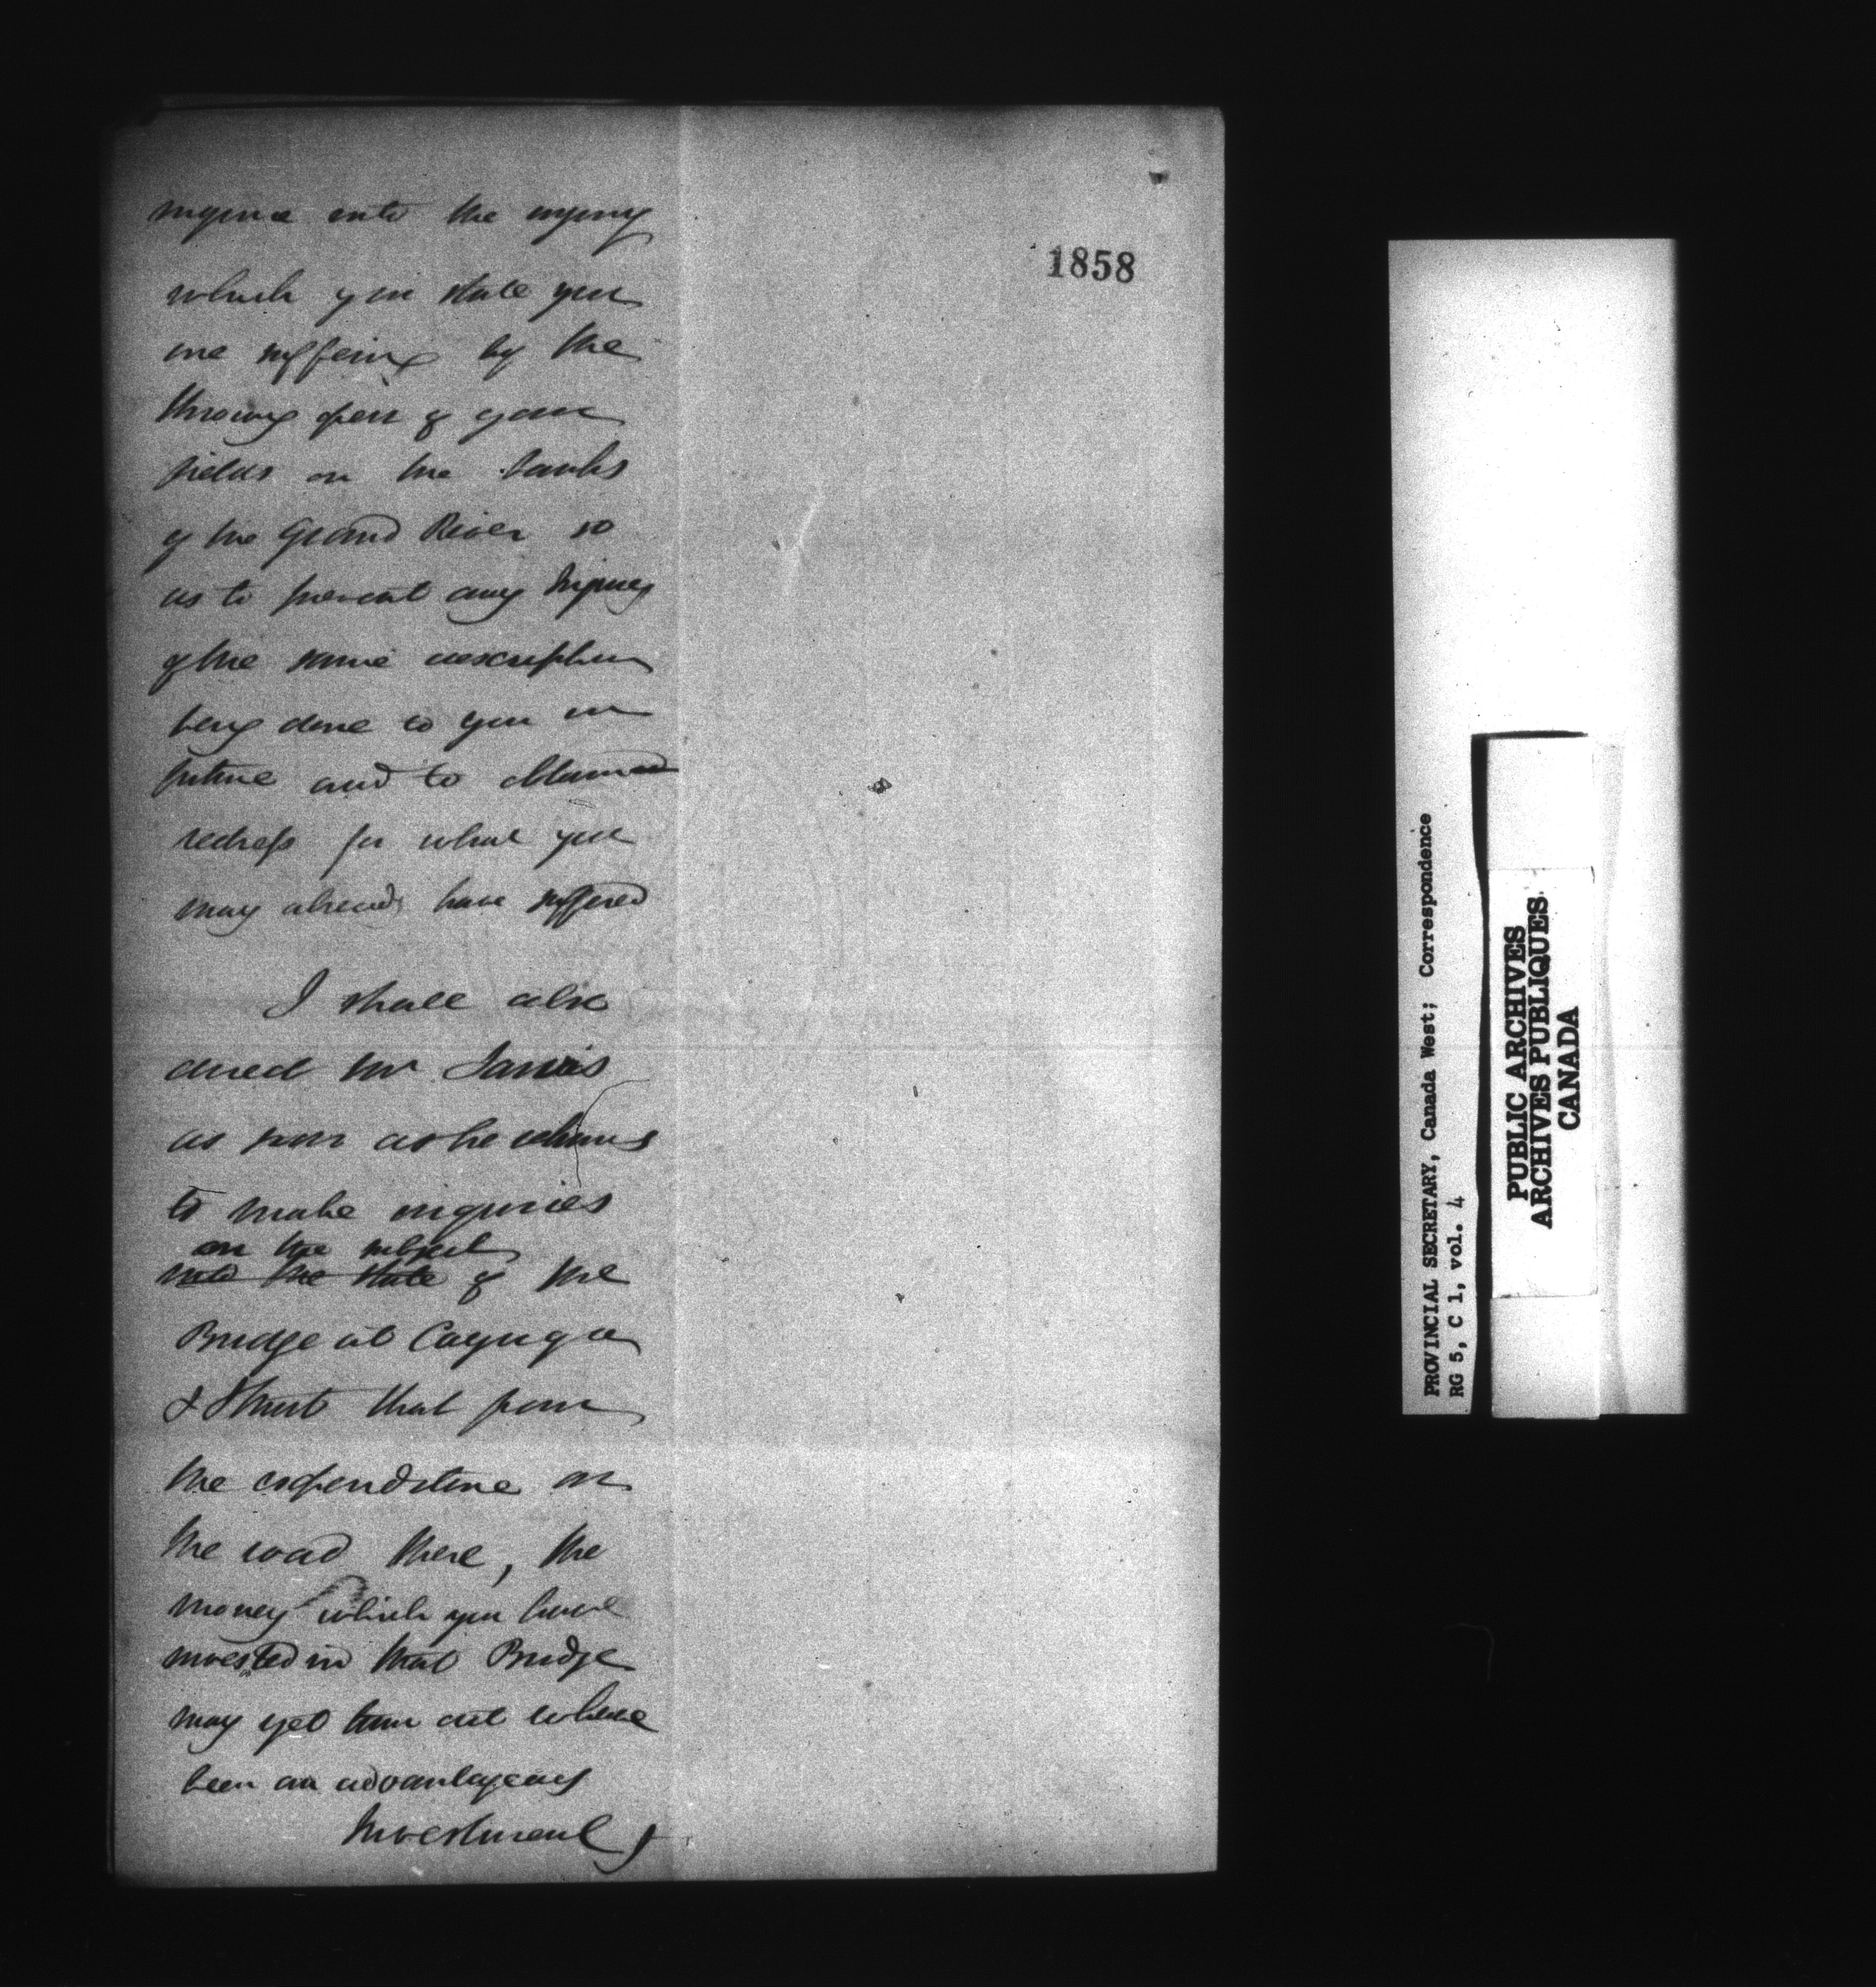 inquire into the injury
which you state you
are suffering by the
throwing open of your
fields on the banks
of the Grand River so
as to prevent any Injury
of the same description
being done to you in
future and to obtain
redress for what you
may already have suffered
I shall also
direct Mr Jarvis
as soon as he returns
to make inquiries
on the subject
into the state of the
Bridge at Cayuga
& I trust that from
the expenditure on
the road there, the
money which you have
invested in that Bridge
may yet turn out to have
been an advantageous
Investment
1858
PROVINCIAL SECRETARY, Canada West; Correspondence
RG 5, C 1, vol. 4
PUBLIC ARCHIVES
ARCHIVES PUBLIQUES
CANADA